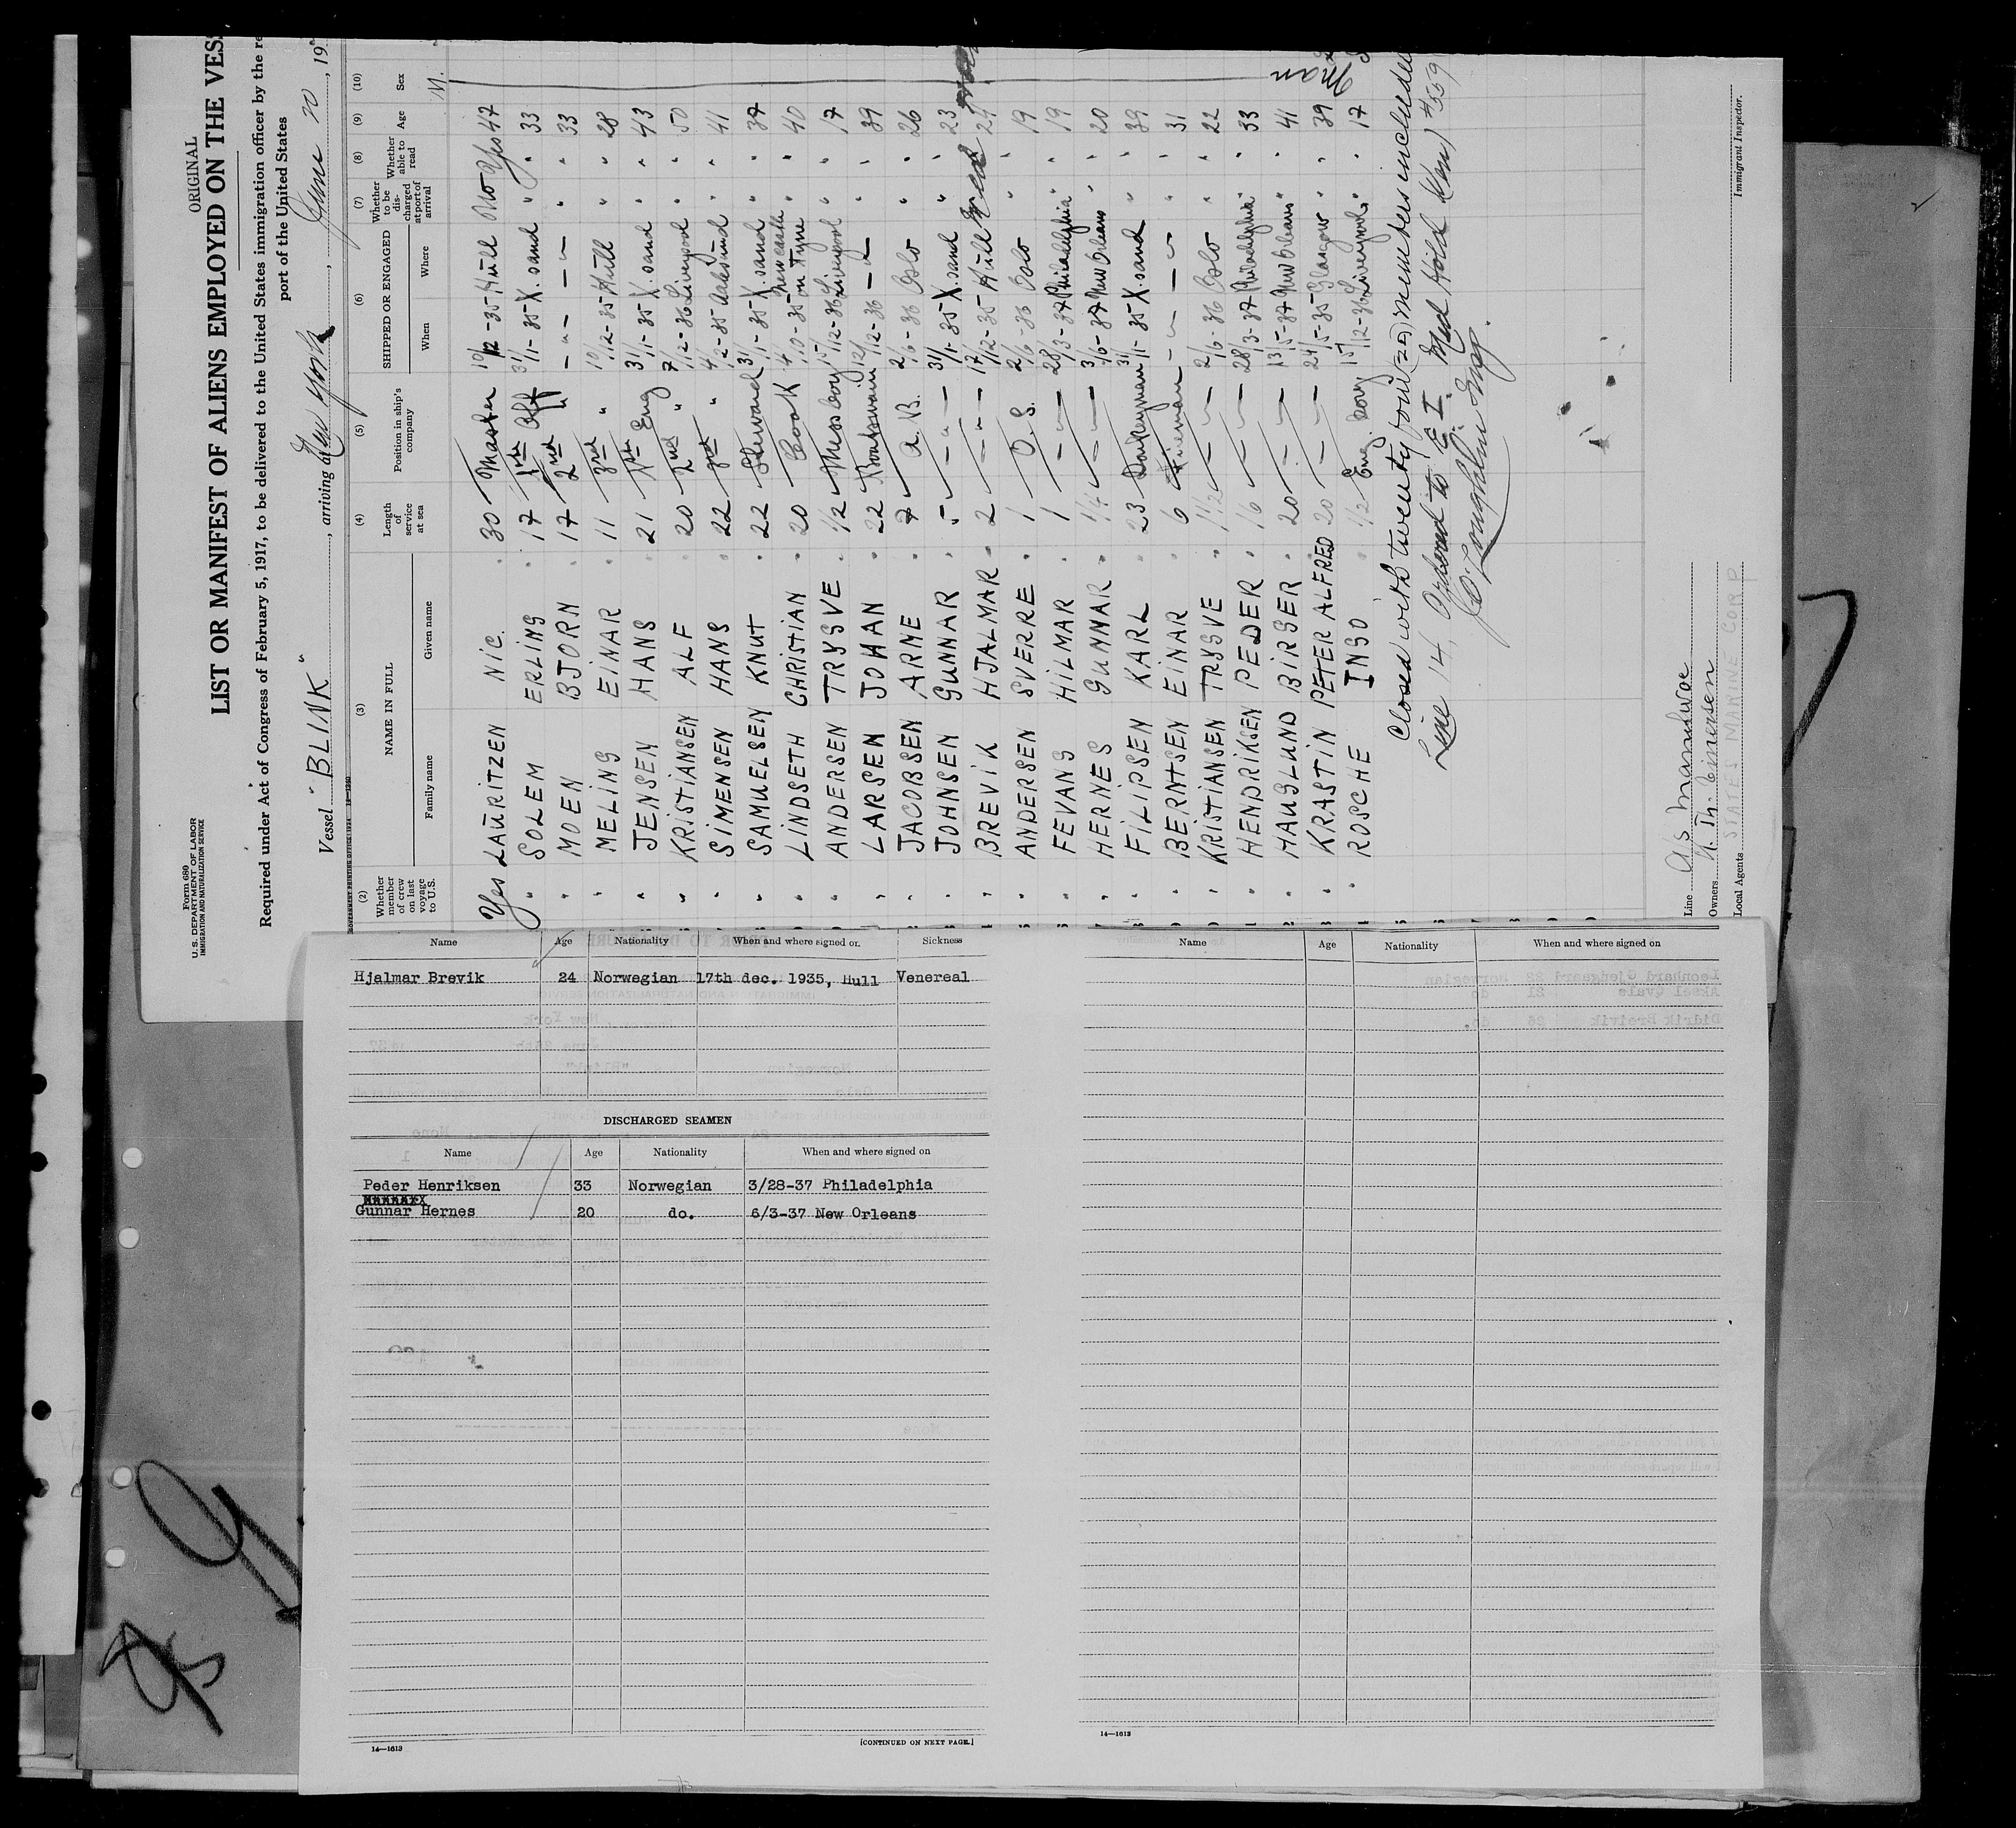 ORIGINAL
Form 680
U. S. DEPARTMENT OF LABOR
IMMIGRATION AND NATURALIZATION SERVICE
LIST OR MANIFEST OF ALIENS EMPLOYED ON THE VES
Required under Act of Congress of February 5, 1917, to be delivered to the United States immigration officer by the re
port of the United States
Vessel "BLINK", arriving at New York, June 20, 19
(2) (3) (4) (5) (6) (7) (8) (9) (10)
Whether member of crew on last voyage to U.S. NAME IN FULL Family name Given name Length of service at sea Position in ship's company SHIPPED OR ENGAGED When Where Whether to be discharged at port of arrival Whether able to read Age Sex
Yes LAURITZEN NIC. 30 Master 10/12-35 Hull No Yes 47 M.
" SOLEM ERLING 17 1st Off 31/1-35 X.sand " " 33
" MOEN BJORN 17 2nd " - " - - " - " " 33
" MELING EINAR 11 3rd " 10/12-35 Hull " " 28
" JENSEN HANS 21 1st Eng 31/1-35 X.sand " " 43
" KRISTIANSEN ALF 20 2nd " 7/12-36 Liverpool " " 50
" SIMENSEN HANS 22 3rd " 4/2-35 Aalesund " " 41
" SAMUELSEN KNUT 22 Steward 31/1-35 X.sand " " 37
" LINDSETH CHRISTIAN 20 Cook 4/10-35 Newcastle on Tyne " " 40
" ANDERSEN TRYGVE 1/2 Messboy 15/12-36 Liverpool " " 17
" LARSEN JOHAN 22 Boatswain 12/12-36 - " - " " 39
" JACOBSEN ARNE 7 A.B. 2/6-36 Oslo " " 26
" JOHNSEN GUNNAR 5 - " - 31/1-35 X.sand " " 23
" BREVIK HJALMAR 2 - " - 17/12-35 Hull " 24
" ANDERSEN SVERRE 1 O.S. 2/6-36 Oslo " " 19
" FEVANG HILMAR 1 - " - 28/3-37 Philadelphia " " 19
" HERNES GUNNAR 1/4 - " - 3/6-37 New Orleans " " 20
" FILIPSEN KARL 23 Donkeyman 31/1-35 X.sand " " 39
" BERNTSEN EINAR 6 Fireman - " - - " - " " 31
" KRISTIANSEN TRYGVE 1 1/2 - " - 2/6-36 Oslo " " 22
" HENDRIKSEN PEDER 16 - " - 28/3-37 Philadelphia " " 33
" HAUGLUND BIRGER 20 - " - 13/5-37 New Orleans " " 41
" KRASTIN PETER ALFRED 20 - " - 24/5-35 Glasgow " " 39
" ROSCHE INGO 1/2 Eng. boy 15/12-36 Liverpool " " 17
Closed with twenty four (24) members included
Line 14, Ordered to E. I. Med Hold
Insp.
Line A/S Mansluoe
Owners A. Th. Einersen
Local Agents STATES MARINE CORP.
Immigrant Inspector.
Name Age Nationality When and where signed on Sickness
Hjalmar Brevik 24 Norwegian 17th dec. 1935, Hull Venereal
DISCHARGED SEAMEN
Name Age Nationality When and where signed on
Peder Henriksen 33 Norwegian 3/28-37 Philadelphia
Gunnar Hernes 20 do. 6/3-37 New Orleans
14—1613
[CONTINUED ON NEXT PAGE.]
Name Age Nationality When and where signed on
14—1613